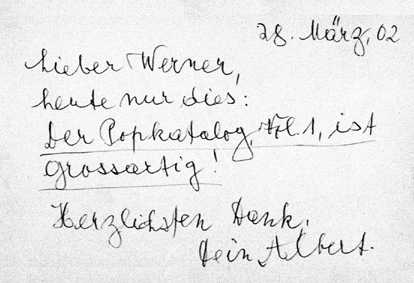 28. März, 02
Lieber Werner,
heute nur dies:
Der Popkatalog, Vol. 1, ist
grossartig!
Herzlichsten Dank,
Dein Albert.